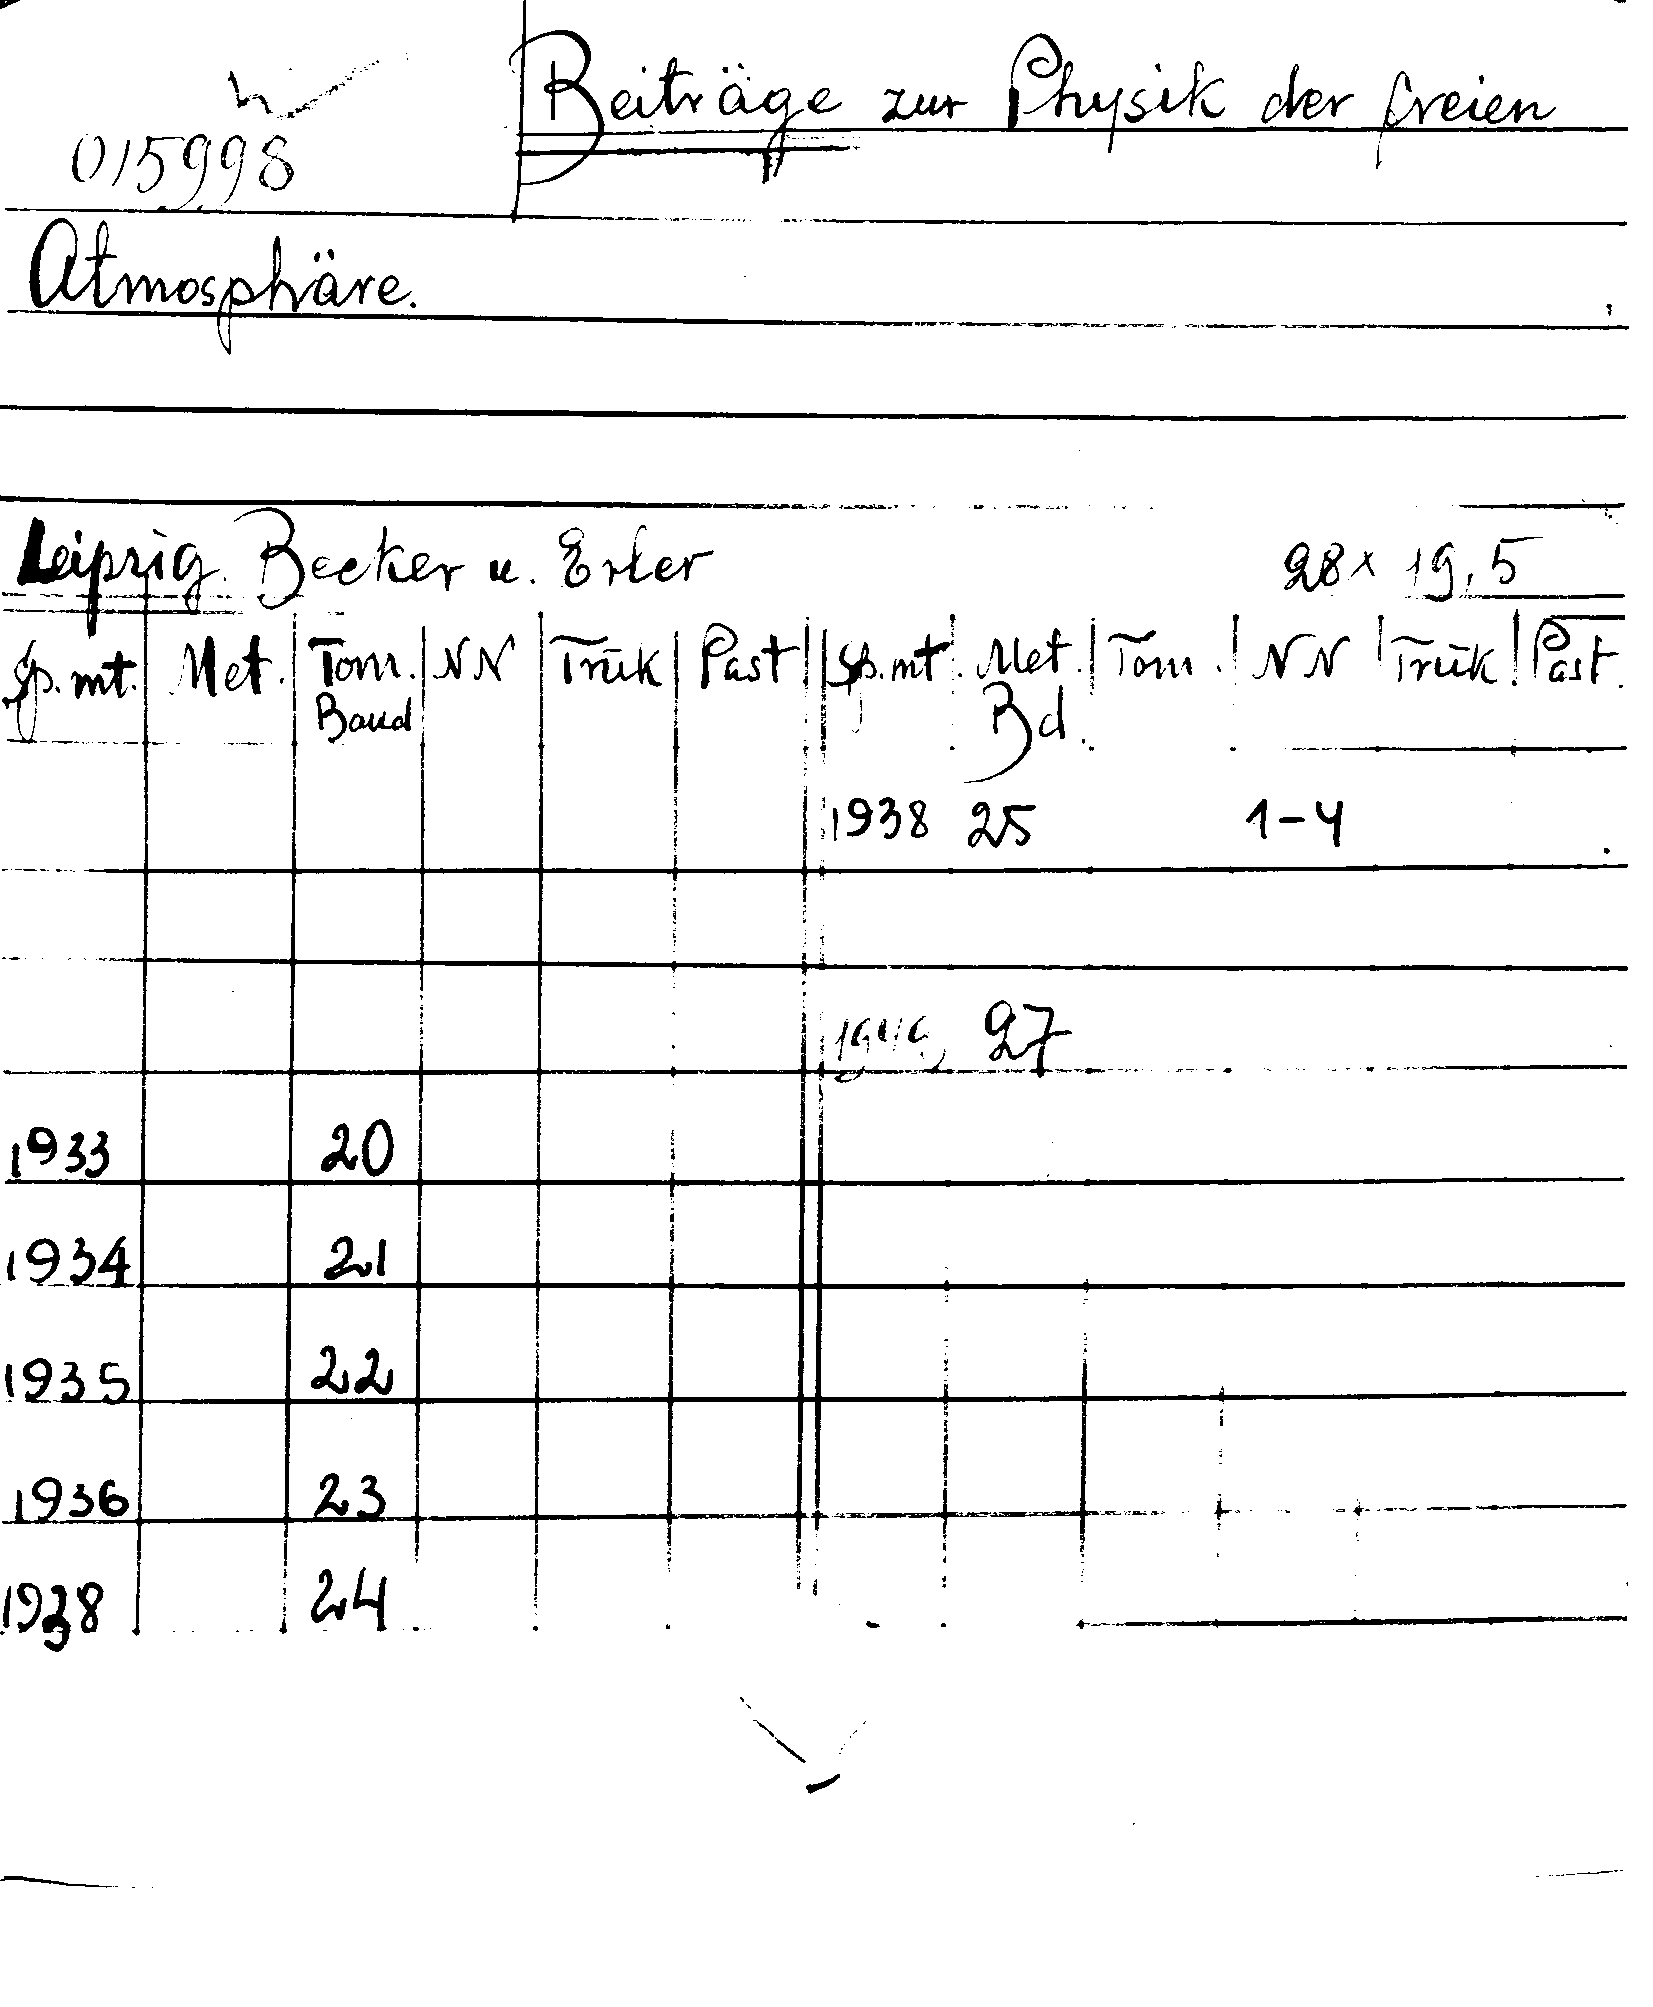 015998
Beiträge zur Physik der freien
Atmosphäre.
Leipzig. Becker u. Erler 28 x 19,5
Sp. mt. Met. Tom. NN Trük Past Sp. mt. Met. Tom. NN Trük Past
Band Bd.
1938 25 1-4
27
1933 20
1934 21
1935 22
1936 23
1938 24